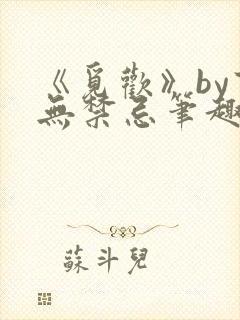 《覓歡》by
無禁忌筆趣
蘇斗兒